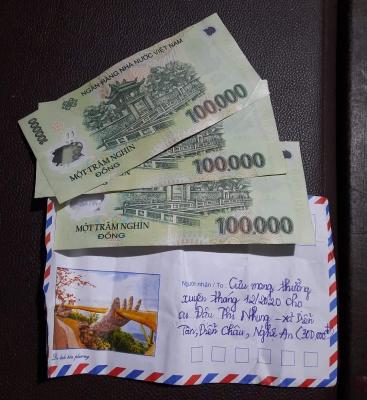 NGÂN HÀNG NHÀ NƯỚC VIỆT NAM
100000
100.000
MỘT TRĂM NGHÌN
ĐỒNG
100.000
MỘT TRĂM NGHÌN
ĐỒNG
100.000
MỘT TRĂM NGHÌN
ĐỒNG
Người nhận / To: Cửu mang thưởng
xuyên tháng 12/2020 cho
cụ Đậu Thị Nhung - xã Diễn
Tân, Diễn Châu, Nghệ An (300.000đ)